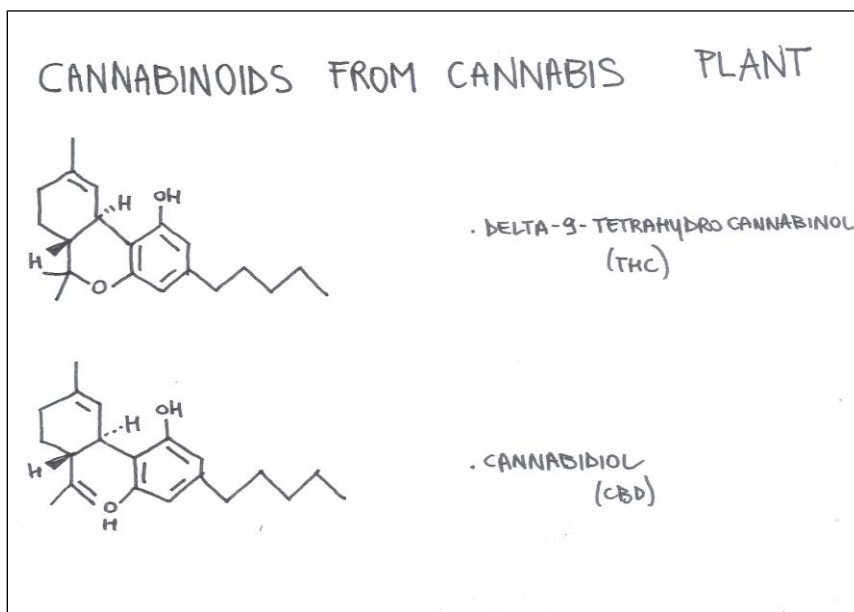 CANNABINOIDS FROM CANNABIS PLANT
H
OH
H
O
. DELTA-9-TETRAHYDROCANNABINOL
(THC)
H
OH
H
O
H
. CANNABIDIOL
(CBD)